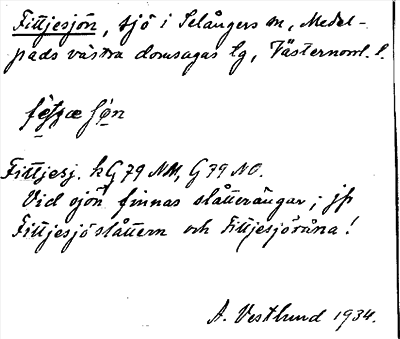 Fittjesjön, sjö i Selångers sn, Medel-
pads västra domsagas tg, Västernorrl. l.
Fittjesj. kG 79 NM, G 79 NO.
Vid sjön finnas slåtterängar; jfr
Fittjesjöslåttern och Fittjesjöråna!
A. Vestlund 1934.